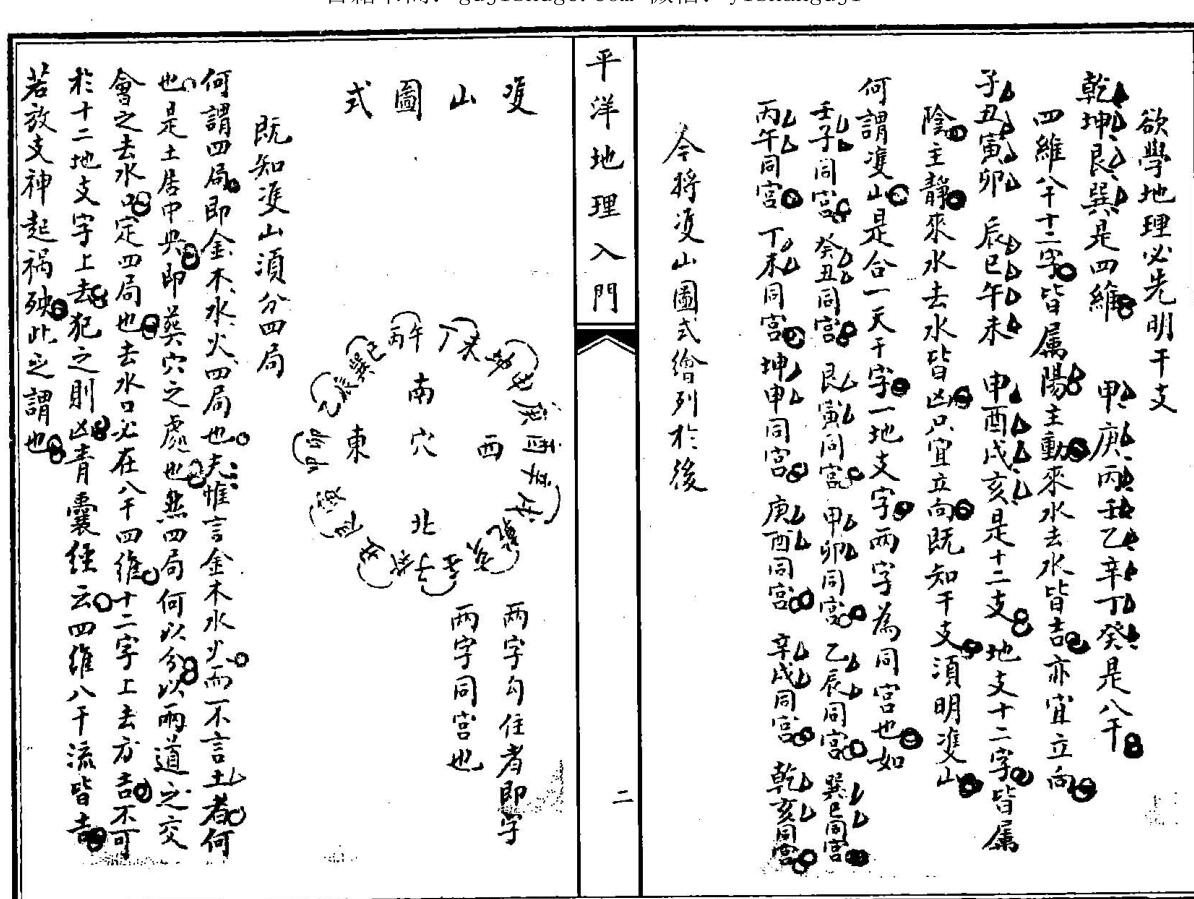 欲學地理必先明干支
乾坤艮巽是四維 甲庚丙壬乙辛丁癸是八干
四維八干十二字皆属陽主動來水去水皆吉亦宜立向
子丑寅卯 辰巳午未 申酉戌亥是十二支 地支十二字皆属
陰主靜來水去水皆凶只宜立向既知干支湏明㕠山
何謂㕠山是合一天干字一地支字两字為同宮也如
壬子同宮 癸丑同宮 艮寅同宮 甲卯同宮 乙辰同宮 巽巳同宮
丙午同宮 丁未同宮 坤申同宮 庚酉同宮 辛戌同宮 乾亥同宮
今将㕠山圖式繪列於後
平洋地理入門
二
㕠山圖式
丙午 丁未 坤申 庚酉 辛戌 乾亥 壬子 癸丑 艮寅 甲卯 乙辰 巽巳
南
東 穴 西
北
两字勾住者即字
两字同宮也
既知㕠山湏分四局
何謂四局即金木水火四局也夫惟言金木水火而不言土者何
也是土居中央即葬穴之處也然四局何以分以兩道之交
會之去水口定四局也去水口必在八干四維十二字上去方吉不可
於十二地支字上去犯之則凶青囊經云四維八干流皆吉
若放支神起禍殃此之謂也